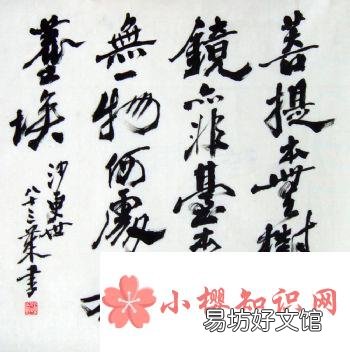 菩提本無樹
鏡亦非臺本
無一物何處
塵埃
八十三
書
小樱知识网
易坊好文馆